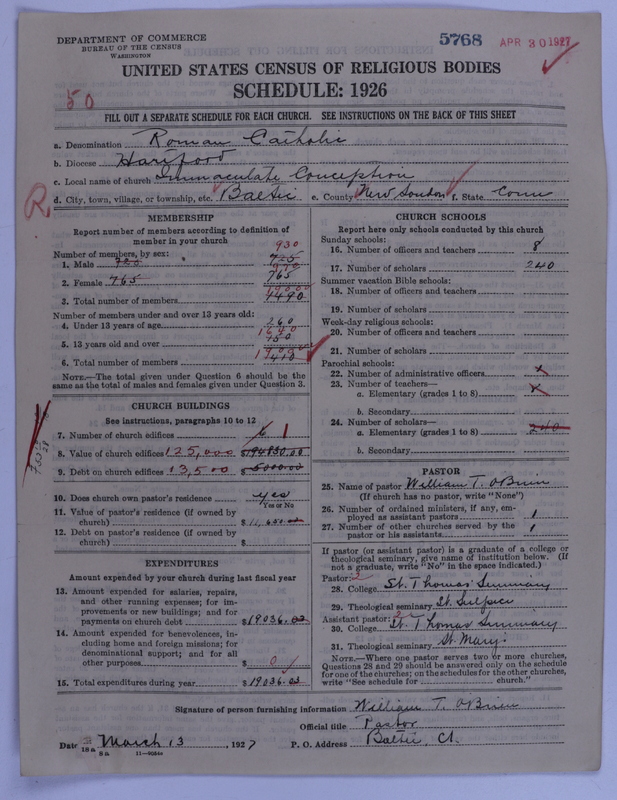 DEPARTMENT OF COMMERCE
BUREAU OF THE CENSUS
WASHINGTON
5768
APR 30 1927
UNITED STATES CENSUS OF RELIGIOUS BODIES
SCHEDULE: 1926
50
FILL OUT A SEPARATE SCHEDULE FOR EACH CHURCH. SEE INSTRUCTIONS ON THE BACK OF THIS SHEET
a. Denomination Roman Catholic
b. Diocese Hartford
c. Local name of church Immaculate Conception
R
d. City, town, village, or township, etc. Baltic e. County New London f. State Conn
MEMBERSHIP
Report number of members according to definition of
member in your church
Number of members, by sex:
930
1. Male 725
2. Female 765 765
3. Total number of members 1490
Number of members under and over 13 years old:
4. Under 13 years of age 260
1640
5. 13 years old and over
6. Total number of members
NOTE.—The total given under Question 6 should be the
same as the total of males and females given under Question 3.
CHURCH BUILDINGS
See instructions, paragraphs 10 to 12
7. Number of church edifices 1
8. Value of church edifices 125,000 $194850.00
9. Debt on church edifices 13,500 $5000.00
10. Does church own pastor's residence yes
Yes or No
11. Value of pastor's residence (if owned by
church) $11,650.00
12. Debt on pastor's residence (if owned by
church) $
EXPENDITURES
Amount expended by your church during last fiscal year
13. Amount expended for salaries, repairs,
and other running expenses; for im-
provements or new buildings; and for
payments on church debt $19036.03
14. Amount expended for benevolences, in-
cluding home and foreign missions; for
denominational support; and for all
other purposes $ 0
15. Total expenditures during year $19036.03
CHURCH SCHOOLS
Report here only schools conducted by this church
Sunday schools:
16. Number of officers and teachers 8
17. Number of scholars 240
Summer vacation Bible schools:
18. Number of officers and teachers
19. Number of scholars
Week-day religious schools:
20. Number of officers and teachers
21. Number of scholars
Parochial schools:
22. Number of administrative officers x
23. Number of teachers—
a. Elementary (grades 1 to 8) x
b. Secondary
24. Number of scholars—
a. Elementary (grades 1 to 8) 240
b. Secondary
PASTOR
25. Name of pastor William T. O'Brien
(If church has no pastor, write "None")
26. Number of ordained ministers, if any, em-
ployed as assistant pastors 1
27. Number of other churches served by the
pastor or his assistants 1
If pastor (or assistant pastor) is a graduate of a college or
theological seminary, give name of institution below. (If
not a graduate, write "No" in the space indicated.)
Pastor:
28. College St. Thomas Seminary
29. Theological seminary St. Sulpice
Assistant pastor:
30. College St. Thomas Seminary
31. Theological seminary St. Mary's
NOTE.—Where one pastor serves two or more churches,
Questions 28 and 29 should be answered only on the schedule
for one of the churches; on the schedules for the other churches,
write "See schedule for church."
Signature of person furnishing information William T. O'Brien
Official title Pastor
Date March 13, 1927 P. O. Address Baltic, Ct.
11—9054